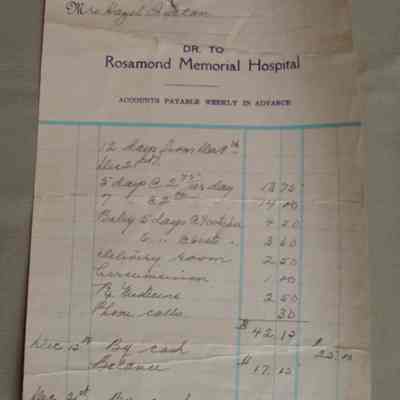 Mrs Hazel
DR. TO
Rosamond Memorial Hospital
ACCOUNTS PAYABLE WEEKLY IN ADVANCE
12 days from
5 days @ 2 75 per day 13 75
7 " @ 2 00 14 00
Baby 5 days @ 4 20
6 " " 3 60
delivery room 2 50
Circumcision 1 00
Medicine 2 50
Phone calls 30
$ 42 10
Dec 12th By cash $ 25 00
Balance $ 17 10
Dec